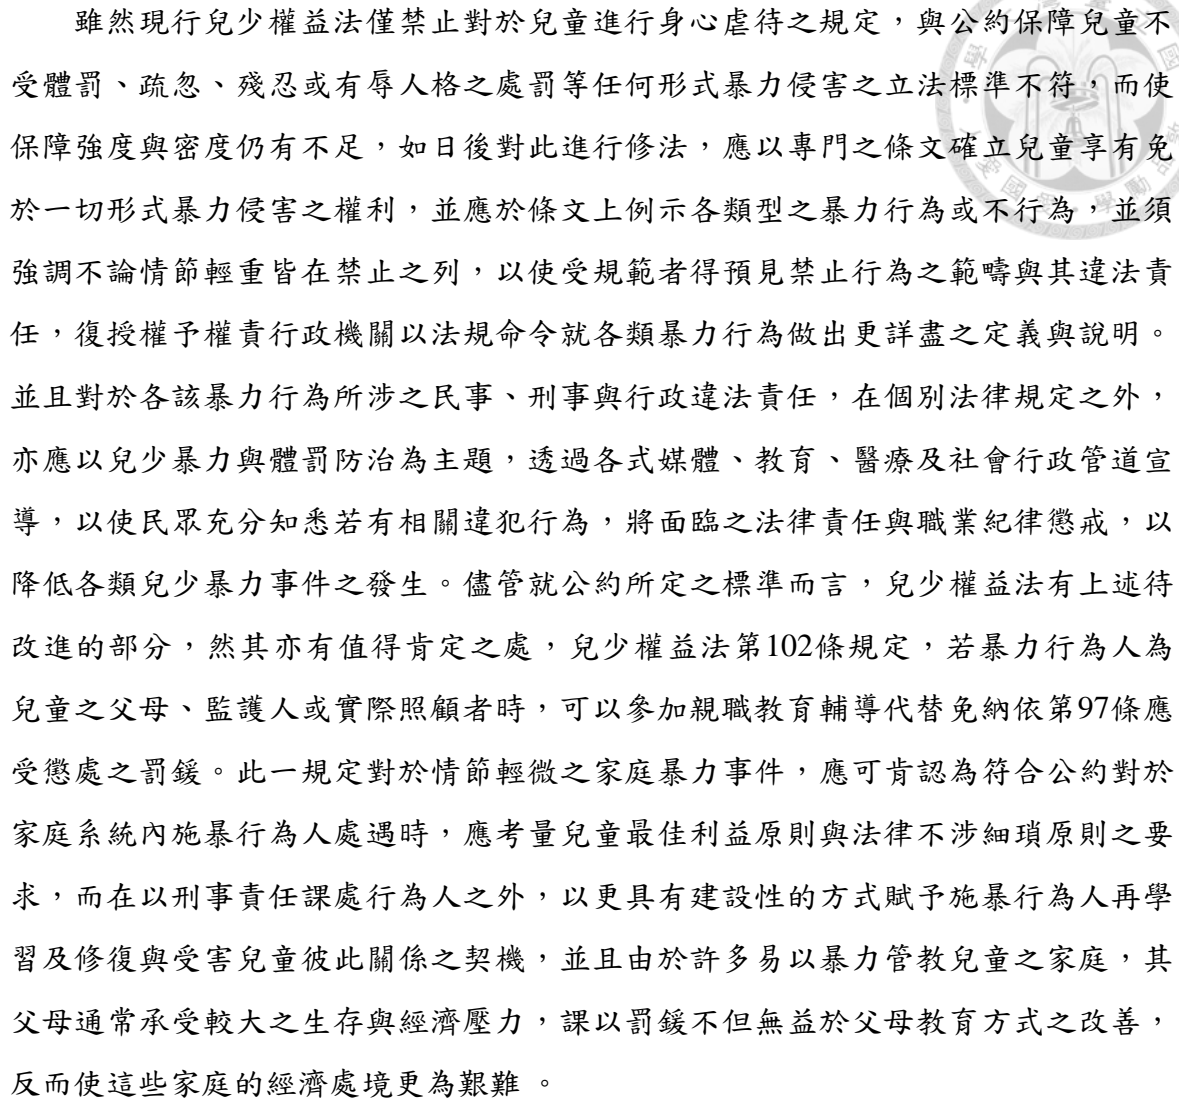 雖然現行兒少權益法僅禁止對於兒童進行身心虐待之規定，與公約保障兒童不
受體罰、疏忽、殘忍或有辱人格之處罰等任何形式暴力侵害之立法標準不符，而使
保障強度與密度仍有不足，如日後對此進行修法，應以專門之條文確立兒童享有免
於一切形式暴力侵害之權利，並應於條文上例示各類型之暴力行為或不行為，並須
強調不論情節輕重皆在禁止之列，以使受規範者得預見禁止行為之範疇與其違法責
任，復授權予權責行政機關以法規命令就各類暴力行為做出更詳盡之定義與說明。
並且對於各該暴力行為所涉之民事、刑事與行政違法責任，在個別法律規定之外，
亦應以兒少暴力與體罰防治為主題，透過各式媒體、教育、醫療及社會行政管道宣
導，以使民眾充分知悉若有相關違犯行為，將面臨之法律責任與職業紀律懲戒，以
降低各類兒少暴力事件之發生。儘管就公約所定之標準而言，兒少權益法有上述待
改進的部分，然其亦有值得肯定之處，兒少權益法第102條規定，若暴力行為人為
兒童之父母、監護人或實際照顧者時，可以參加親職教育輔導代替免納依第97條應
受懲處之罰鍰。此一規定對於情節輕微之家庭暴力事件，應可肯認為符合公約對於
家庭系統內施暴行為人處遇時，應考量兒童最佳利益原則與法律不涉細瑣原則之要
求，而在以刑事責任課處行為人之外，以更具有建設性的方式賦予施暴行為人再學
習及修復與受害兒童彼此關係之契機，並且由於許多易以暴力管教兒童之家庭，其
父母通常承受較大之生存與經濟壓力，課以罰鍰不但無益於父母教育方式之改善，
反而使這些家庭的經濟處境更為艱難 。